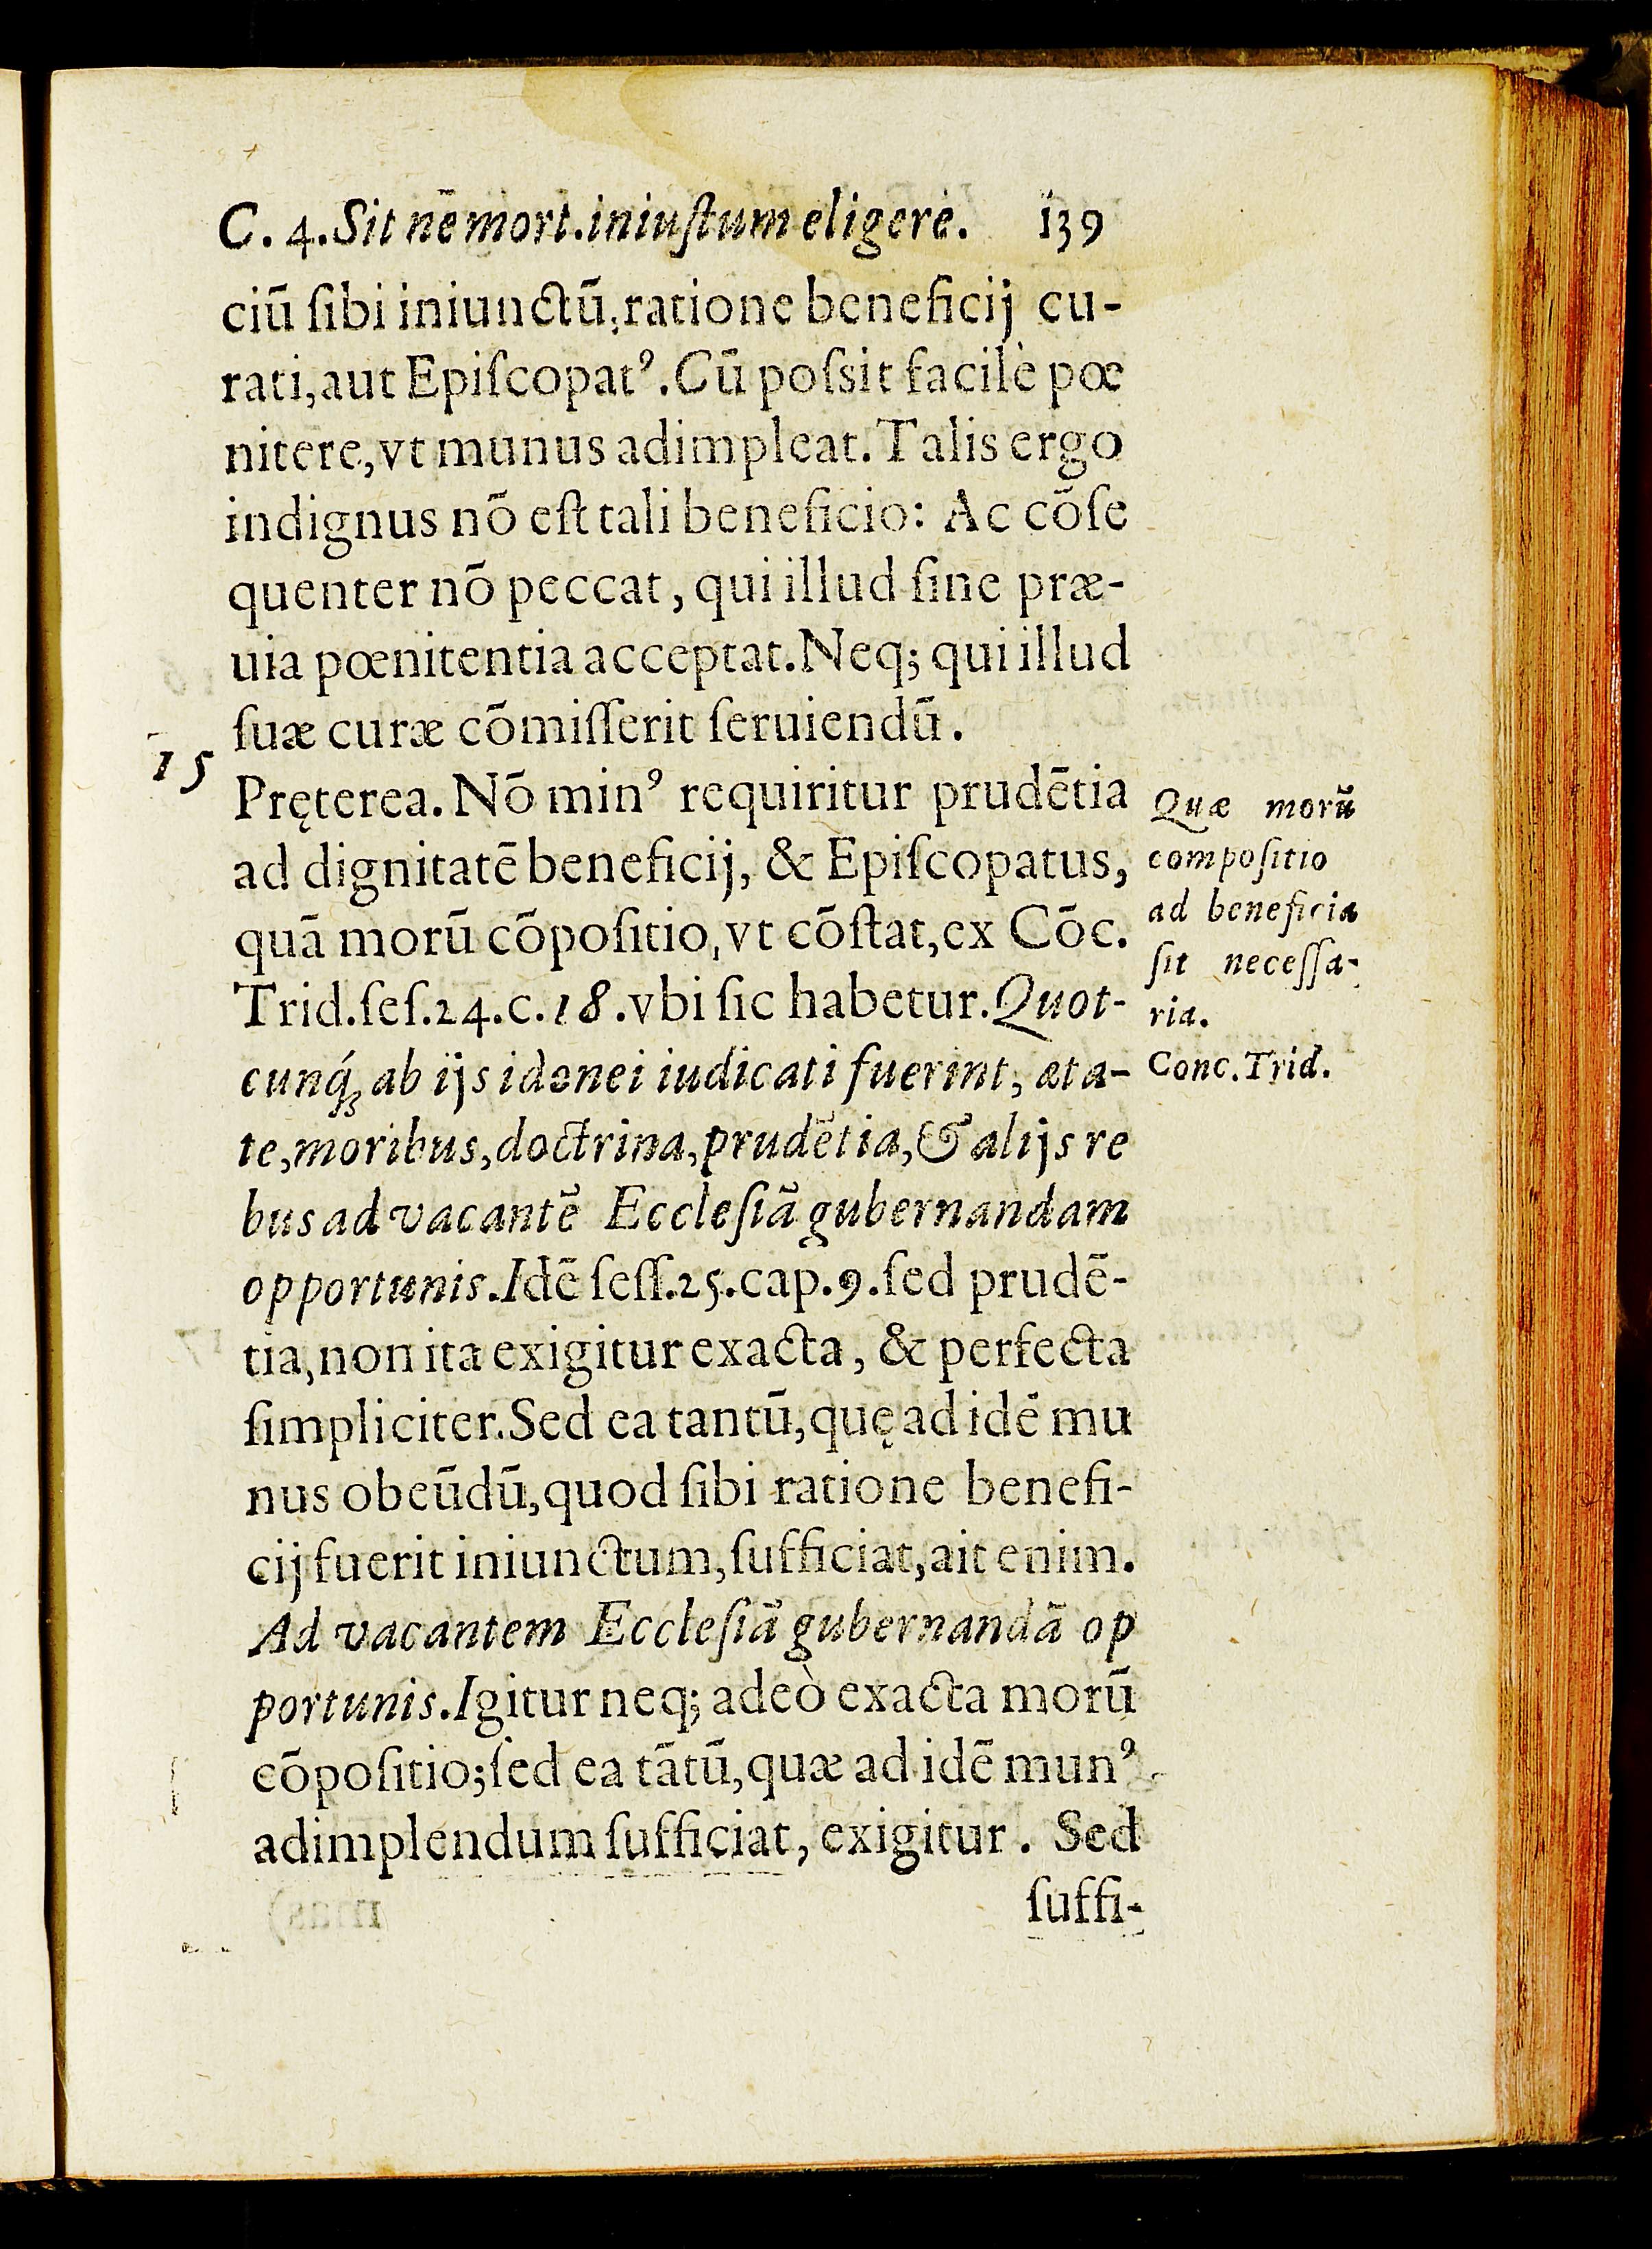 C. 4. Sit nē mort. iniuſtum eligere. 139
ciū ſibi iniunctū, ratione beneficij cu-
rati, aut Epiſcopatꝰ. Cū poſsit facilè pœ
nitere, vt munus adimpleat. Talis ergo
indignus nō eſt tali beneficio: Ac cōſe
quenter nō peccat, qui illud ſine præ-
uia pœnitentia acceptat. Neq; qui illud
ſuæ curæ cōmiſſerit ſeruiendū.
15
Pręterea. Nō minꝰ requiritur prudētia
ad dignitatē beneficij, & Epiſcopatus,
quā morū cōpoſitio, vt cōſtat, ex Cōc.
Trid. ſeſ. 24. c. 18. vbi ſic habetur. Quot-
cunq́; ab ijs idonei iudicati fuerint, æta-
te, moribus, doctrina, prudētia, & alijs re
bus ad vacantē Eccleſiā gubernandam
opportunis. Idē ſeſſ. 25. cap. 9. ſed prudē-
tia, non ita exigitur exacta, & perfecta
ſimpliciter. Sed ea tantū, quę ad idē mu
nus obeūdū, quod ſibi ratione benefi-
cij fuerit iniunctum, ſufficiat, ait enim.
Ad vacantem Eccleſiā gubernandā op
portunis. Igitur neq; adeò exacta morū
cōpoſitio; ſed ea tātū, quæ ad idē munꝰ
adimplendum ſufficiat, exigitur. Sed
ſuffi-
Quæ morū
compoſitio
ad beneficia
ſit neceſſa-
ria.
Conc. Trid.